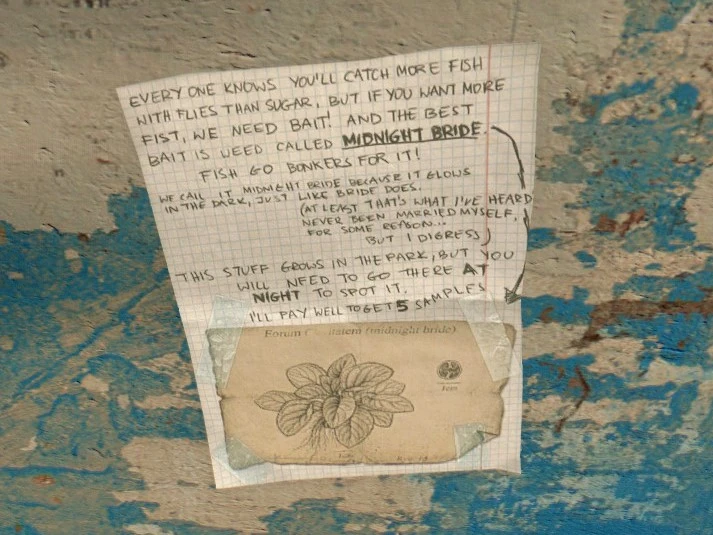 EVERY ONE KNOWS YOU'LL CATCH MORE FISH
WITH FLIES THAN SUGAR, BUT IF YOU WANT MORE
FIST, WE NEED BAIT! AND THE BEST
BAIT IS UEED CALLED MIDNIGHT BRIDE.
FISH GO BONKERS FOR IT!
WE CALL IT MIDNIGHT BRIDE BECAUSE IT GLOWS
IN THE DARK, JUST LIKE BRIDE DOES.
(AT LEAST THAT'S WHAT I'VE HEARD
NEVER BEEN MARRIED MYSELF,
FOR SOME REASON...
BUT I DIGRESS)
THIS STUFF GROWS IN THE PARK, BUT YOU
WILL NEED TO GO THERE AT
NIGHT TO SPOT IT.
I'LL PAY WELL TO GET 5 SAMPLES
Forum (midnight bride)